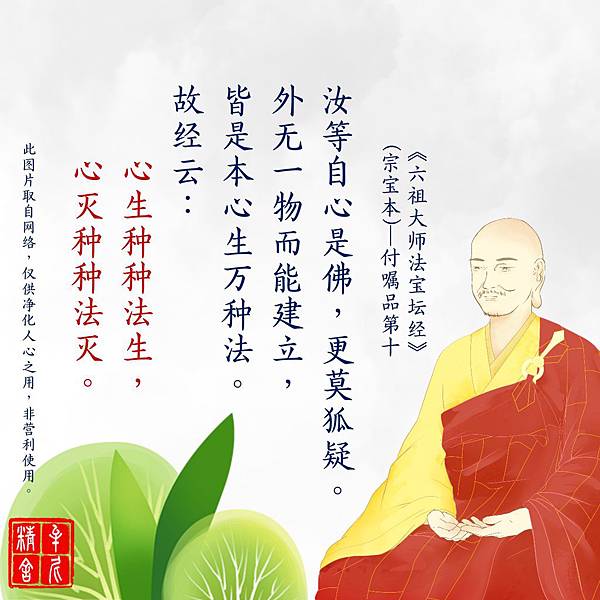 《六祖大师法宝坛经》
(宗宝本)—付嘱品第十
汝等自心是佛，更莫狐疑。
外无一物而能建立，
皆是本心生万种法。
故经云：
心生种种法生，
心灭种种法灭。
此图片取自网络，仅供净化人心之用，非营利使用。
精舍